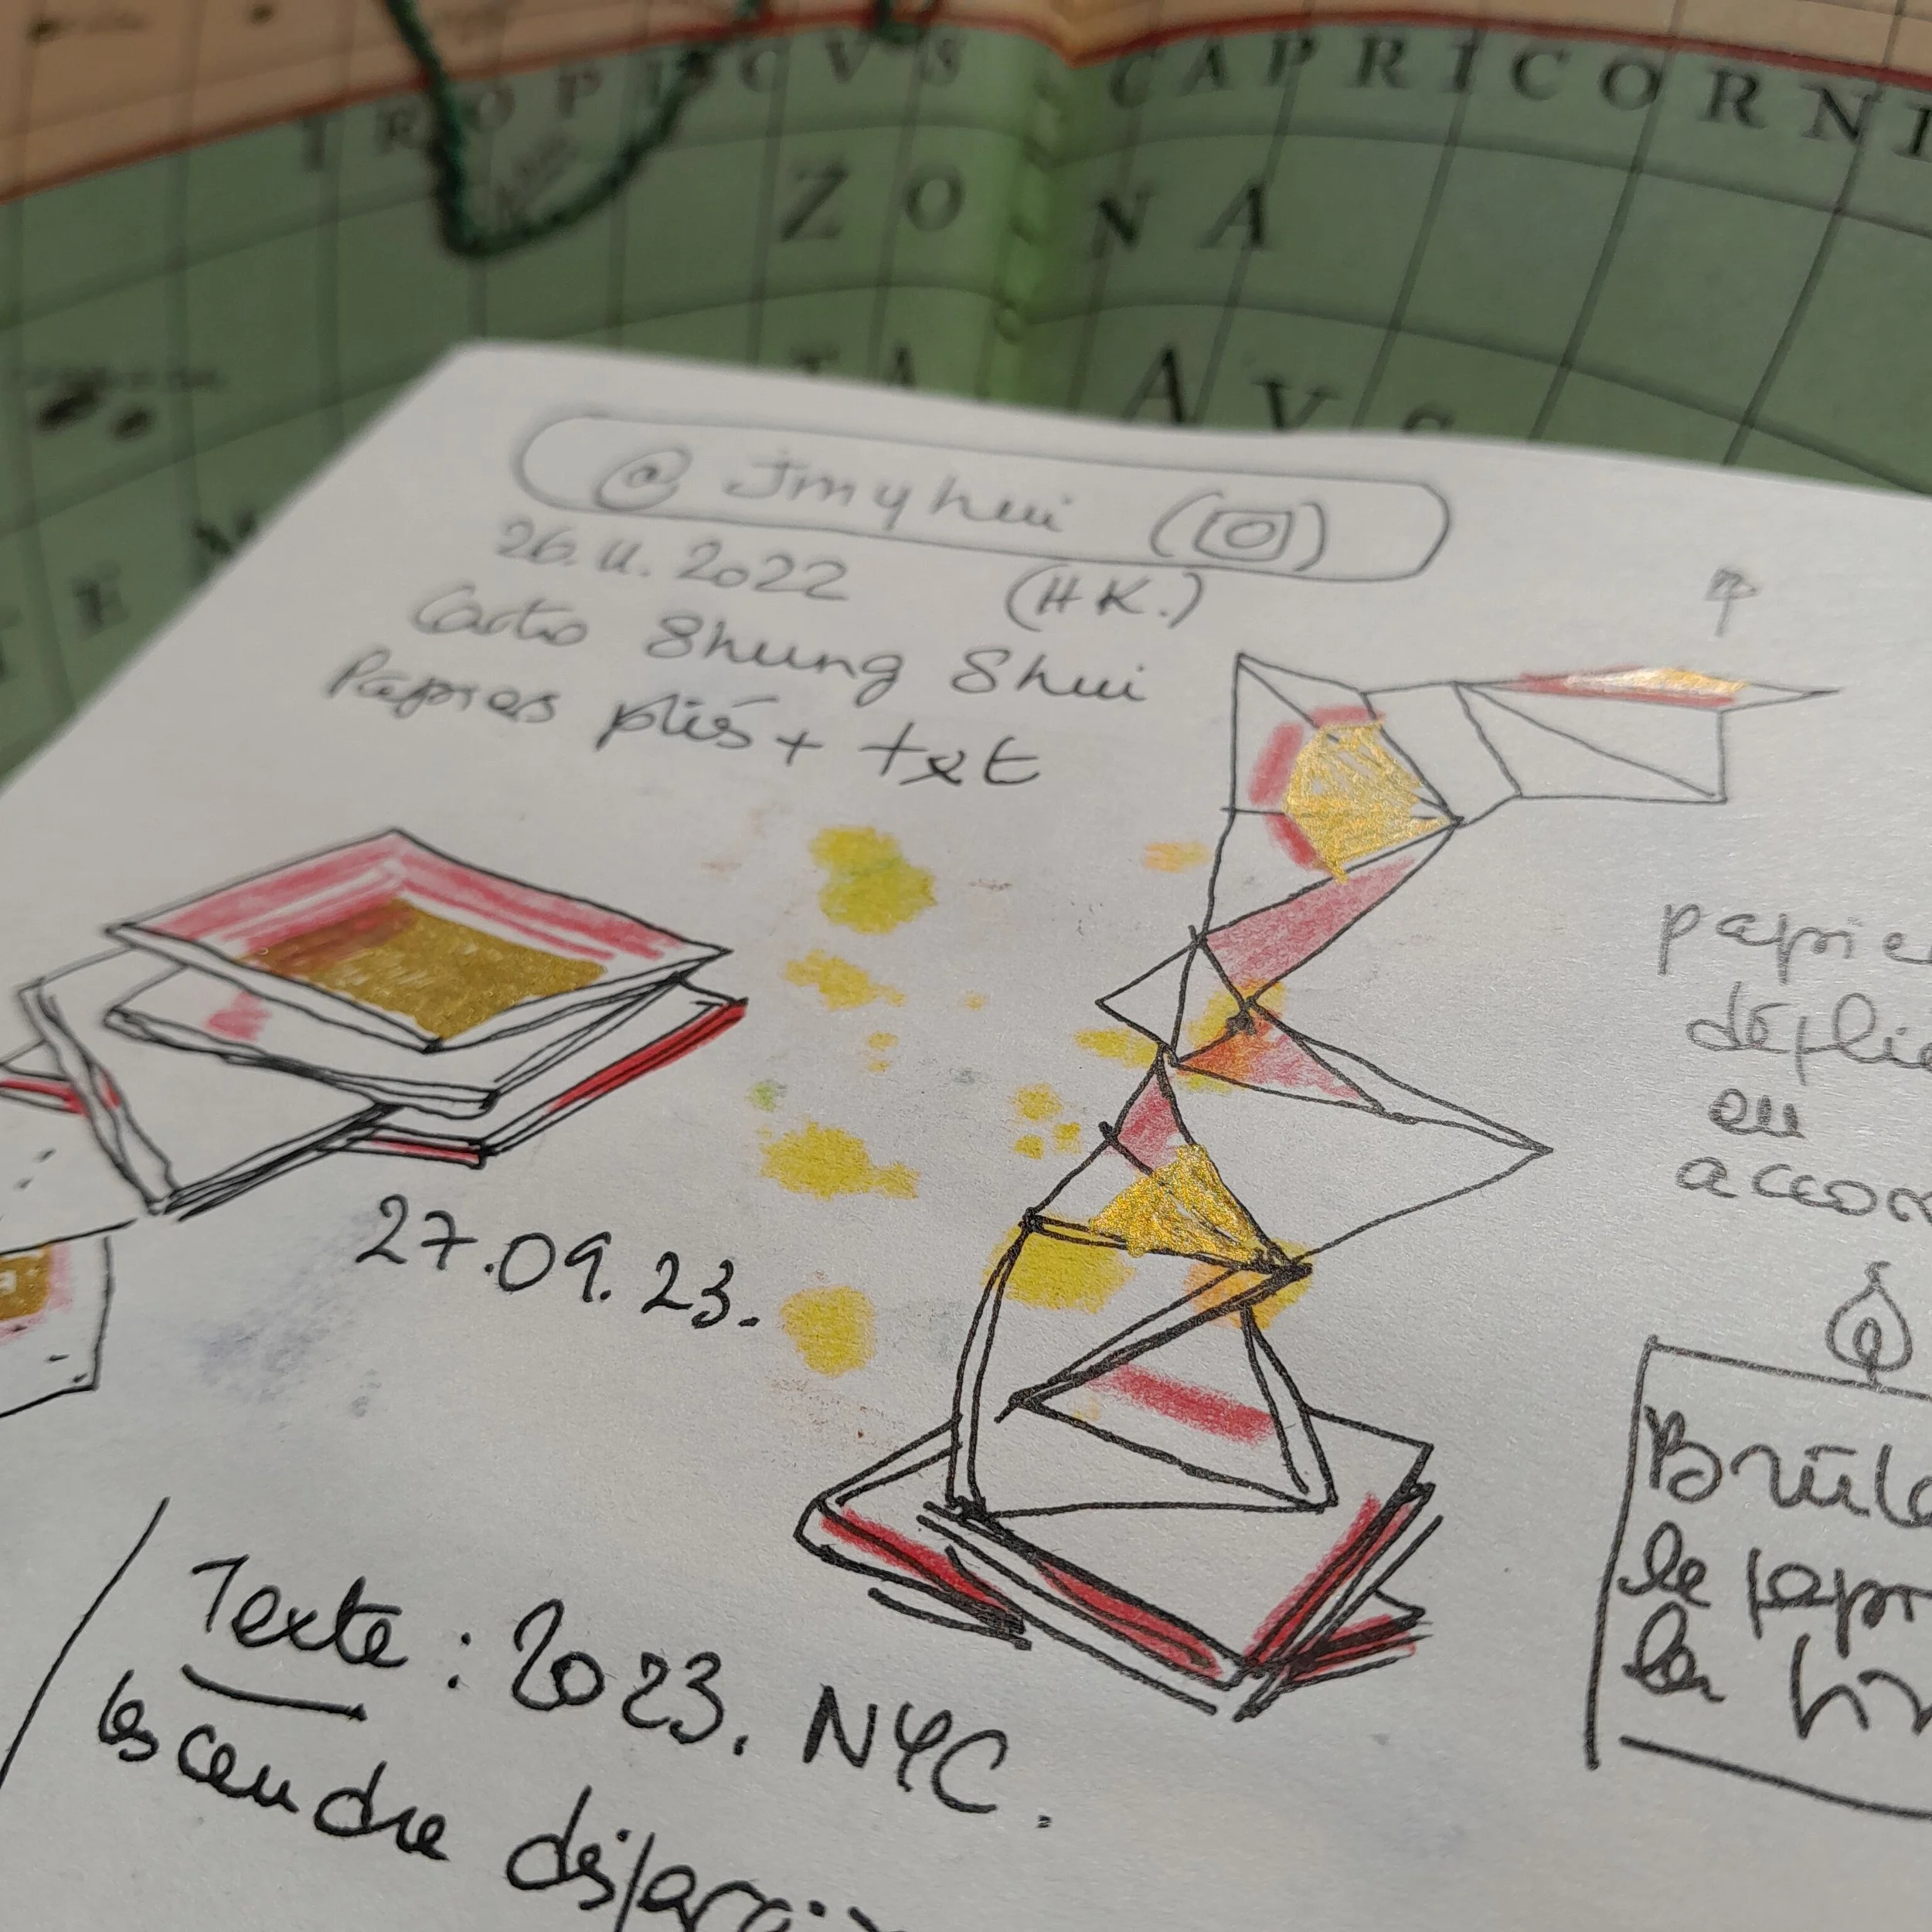 TROPICVS CAPRICORNI
ZONA
AVS
@ Jmyhui
26.11.2022 (HK.)
Carto Shung Shui
Papiers pliés + txt
papie
déplié
en
accor
27.09.23.
Brûle
le papi
la
Texte : 2023. NYC.
les cendre disparai